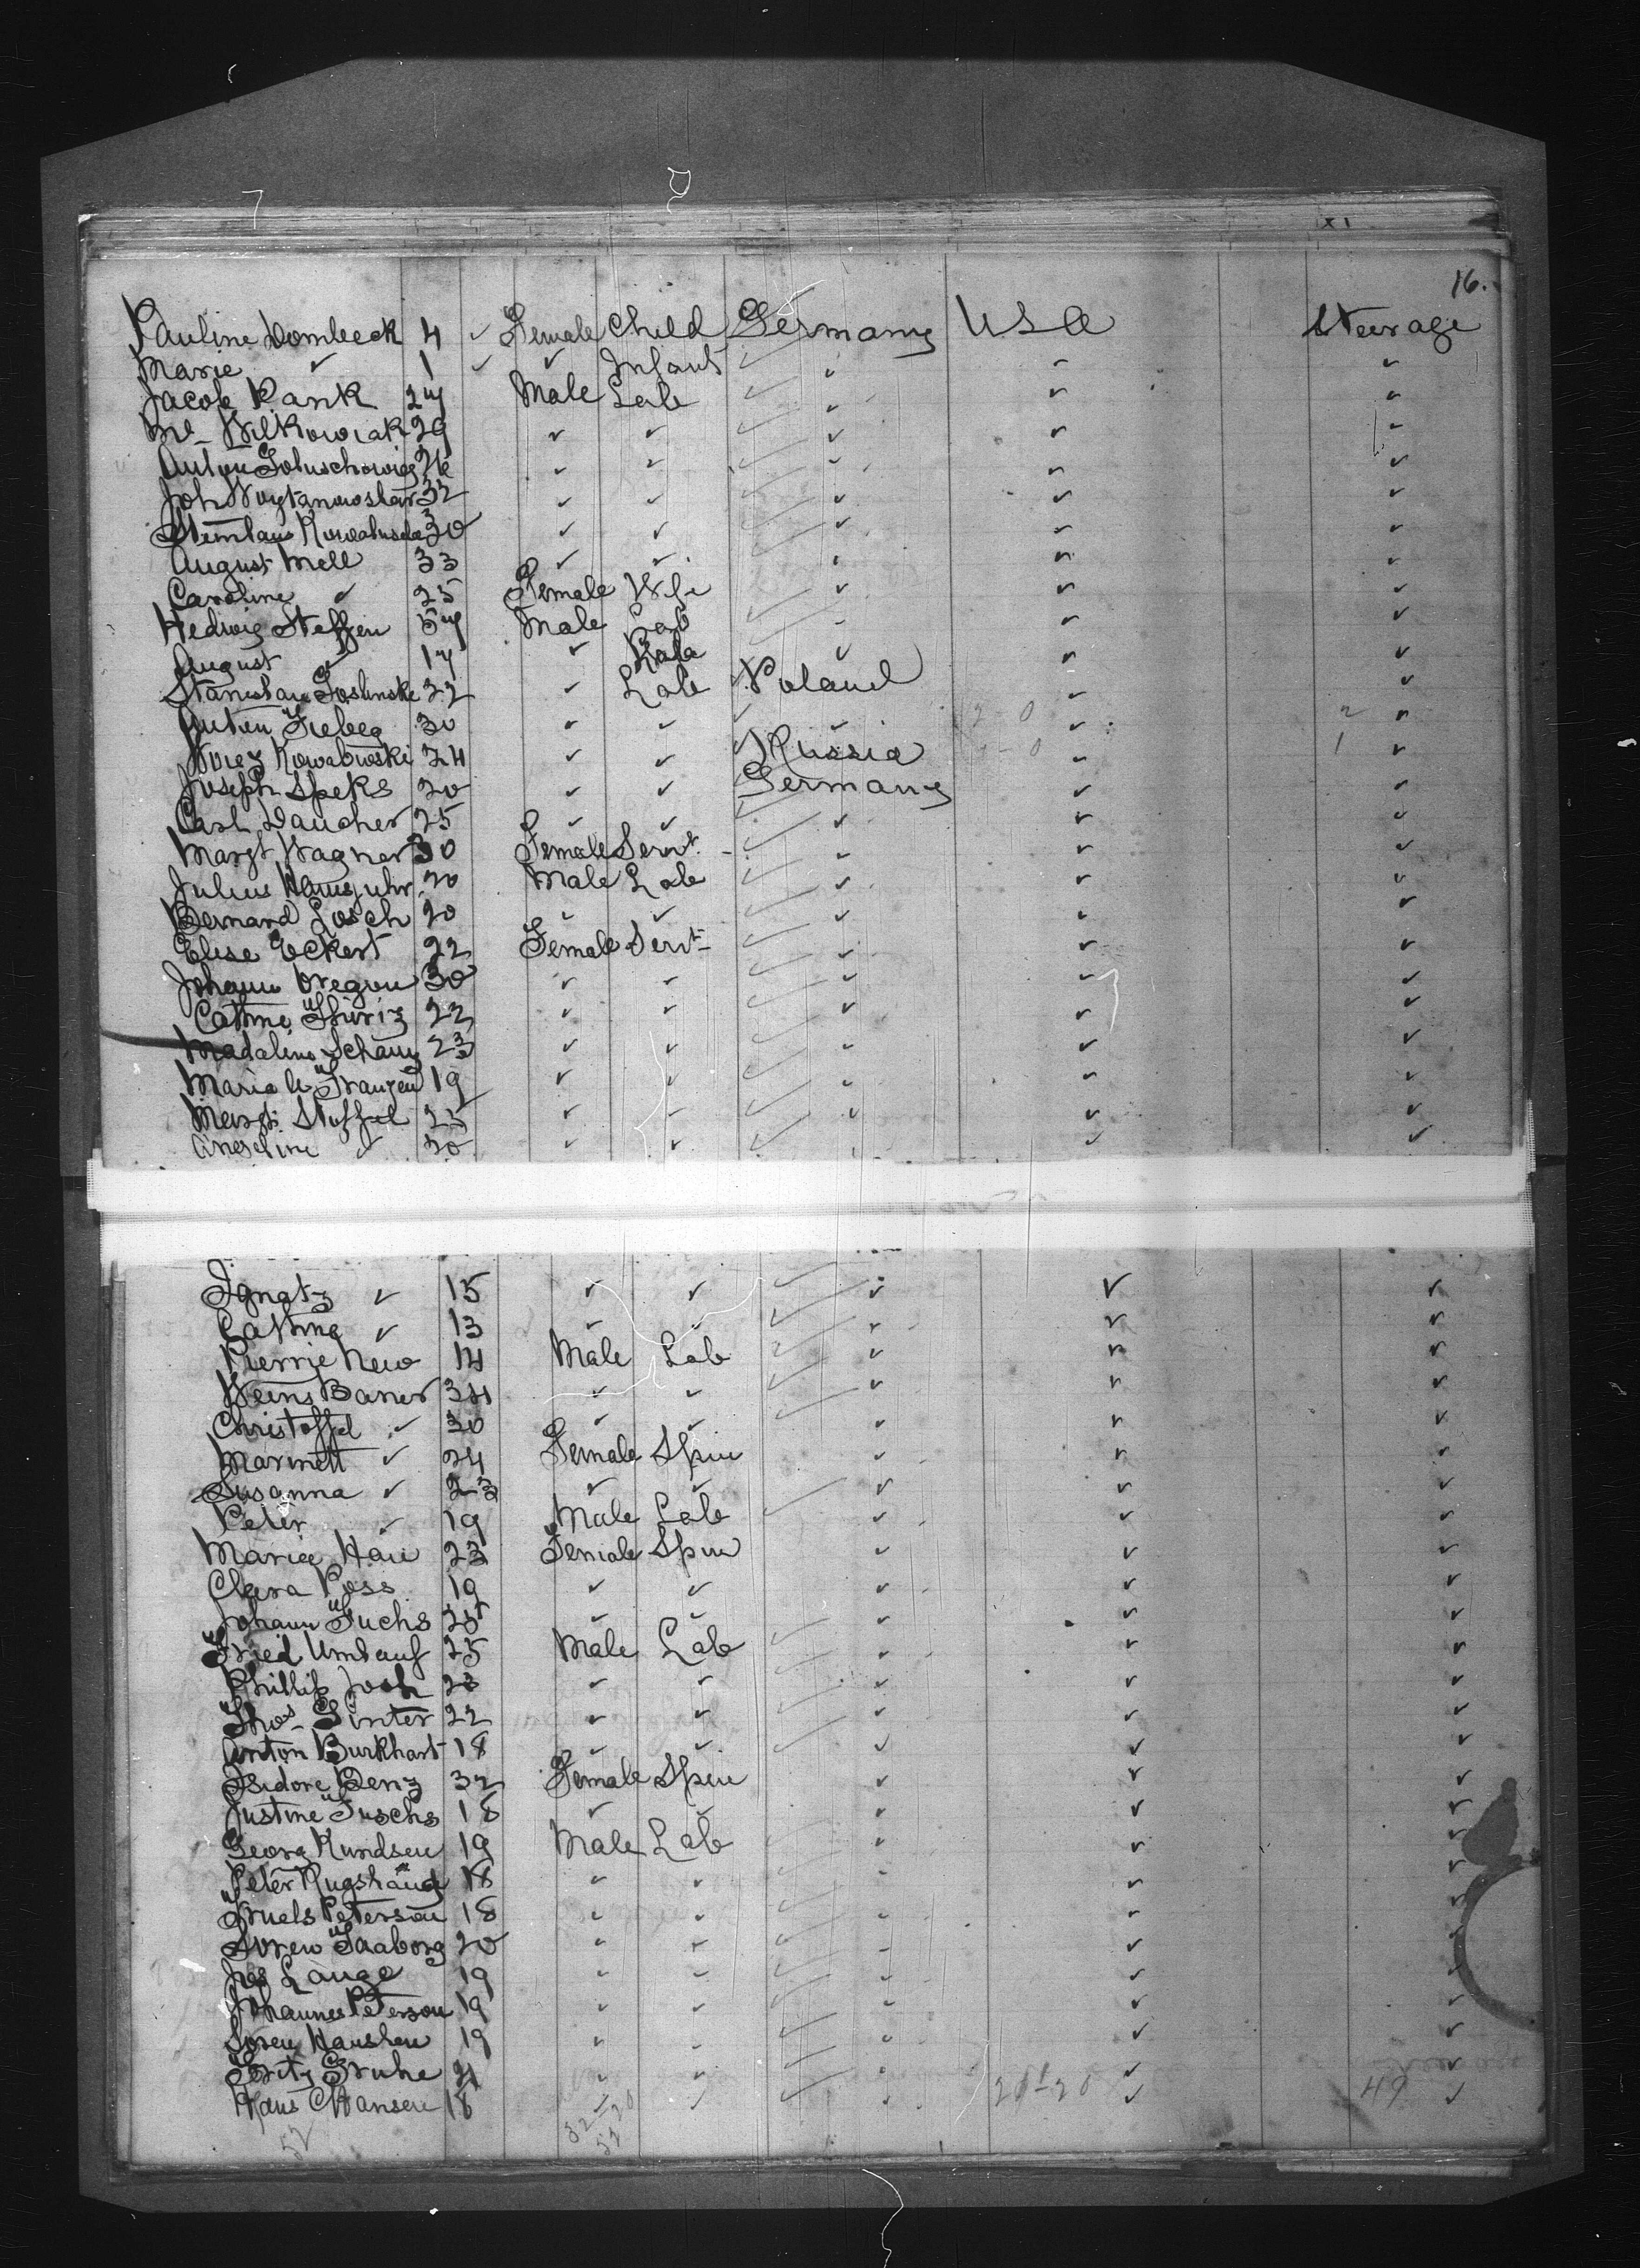 16.
Pauline Dombeck 4 ✓ Female Child Germany U S A Steerage
Marie ✓ 1 ✓ ✓ Infant ✓ ✓ ✓
Jacob Rank 24 Male Lab ✓ ✓ ✓
Wilkowiak 29 ✓ ✓ ✓ ✓ ✓
Anton ✓ ✓ ✓ ✓ ✓
Joh 32 ✓ ✓ ✓ ✓ ✓
30 ✓ ✓ ✓ ✓ ✓
August Mell 33 ✓ ✓ ✓ ✓ ✓
Caroline ✓ 25 Female Wife ✓ ✓ ✓
Hedwig Steffen 54 Male Lab ✓ ✓ ✓
August ✓ 14 ✓ ✓ ✓ ✓
Stanislaus Goslinske 32 ✓ Lab Poland ✓ ✓
30 ✓ ✓ ✓ 2-0 ✓ 2 ✓
Kowabowski 24 ✓ ✓ Russia 1-0 ✓ 1 ✓
Joseph Speks 20 ✓ ✓ Germany ✓ ✓
Carl Daucher 25 ✓ ✓ ✓ ✓ ✓
Margt Wagner 30 Female Servt ✓ ✓ ✓
Julius 20 Male Lab ✓ ✓ ✓
Bernard Losch 20 ✓ ✓ ✓ ✓ ✓
Elise Eckert 22 Female Servt ✓ ✓ ✓
Johann Oregon 30 ✓ ✓ ✓ ✓ ✓
Cathne 22 ✓ ✓ ✓ ✓ ✓
Madaline Schang 23 ✓ ✓ ✓ ✓ ✓
Maria Franzen 19 ✓ ✓ ✓ ✓ ✓
Margt Stoffel 25 ✓ ✓ ✓ ✓ ✓
Angeline ✓ 20 ✓ ✓ ✓ ✓ ✓
Ignatz ✓ 15 ✓ ✓ ✓ ✓ ✓
Cathne ✓ 13 ✓ ✓ ✓ ✓ ✓
Pierrie New 14 Male Lab ✓ ✓ ✓
Weins Baner 34 ✓ ✓ ✓ ✓ ✓
Christoffel ✓ 30 ✓ ✓ ✓ ✓ ✓
Marinett ✓ 24 Female Spin ✓ ✓ ✓
Susanna ✓ 23 ✓ ✓ ✓ ✓ ✓
Peter ✓ 19 Male Lab ✓ ✓ ✓
Maria Hau 23 Female Spin ✓ ✓ ✓
Clara Poss 19 ✓ ✓ ✓ ✓ ✓
Johann Fuchs 25 ✓ ✓ ✓ ✓ ✓
Fried Umlauf 25 Male Lab ✓ ✓ ✓
Phillip Josh 23 ✓ ✓ ✓ ✓ ✓
Thos Ginter 22 ✓ ✓ ✓ ✓ ✓
Anton Burkhart 18 ✓ ✓ ✓ ✓ ✓
Isidore Benz 32 Female Spin ✓ ✓ ✓
Justine Fuschs 18 ✓ ✓ ✓ ✓ ✓
Georg Kundsen 19 Male Lab ✓ ✓ ✓
Peter 18 ✓ ✓ ✓ ✓ ✓
Peterson 18 ✓ ✓ ✓ ✓ ✓
Soren Faaborg 20 ✓ ✓ ✓ ✓ ✓
Jes Lange 19 ✓ ✓ ✓ ✓ ✓
Johannes Peterson 19 ✓ ✓ ✓ ✓ ✓
Soren Hanshen 19 ✓ ✓ ✓ ✓ ✓
Fritz Gruhe 21 ✓ ✓ ✓ ✓ ✓
Hans C Hansen 18 ✓ ✓ ✓ 20-20 ✓ 49 ✓
52 32-20
52